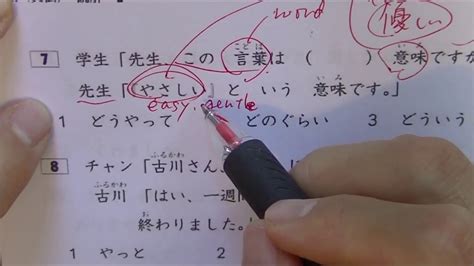 word
優しい
7 学生「先生、この 言葉は ( ) 意味ですか
ことば いみ
先生「『やさしい』と いう 意味です。」
easy, gentle
1 どうやって どのぐらい 3 どういう
8 チャン「古川さん、
ふるかわ
古川「はい、一週間
ふるかわ
終わりました。」
お
1 やっと 2